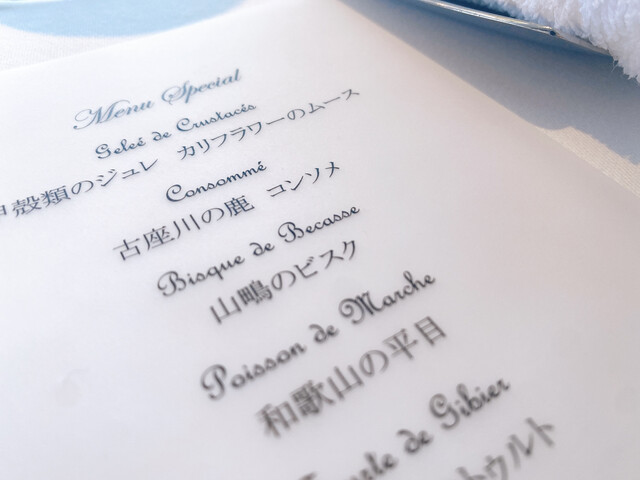 Menu Special
Geleé de Crustacés
殻類のジュレ カリフラワーのムース
Consommé
古座川の鹿 コンソメ
Bisque de Becasse
山鴫のビスク
Poisson de Marche
和歌山の平目
de Gibier
トゥルト